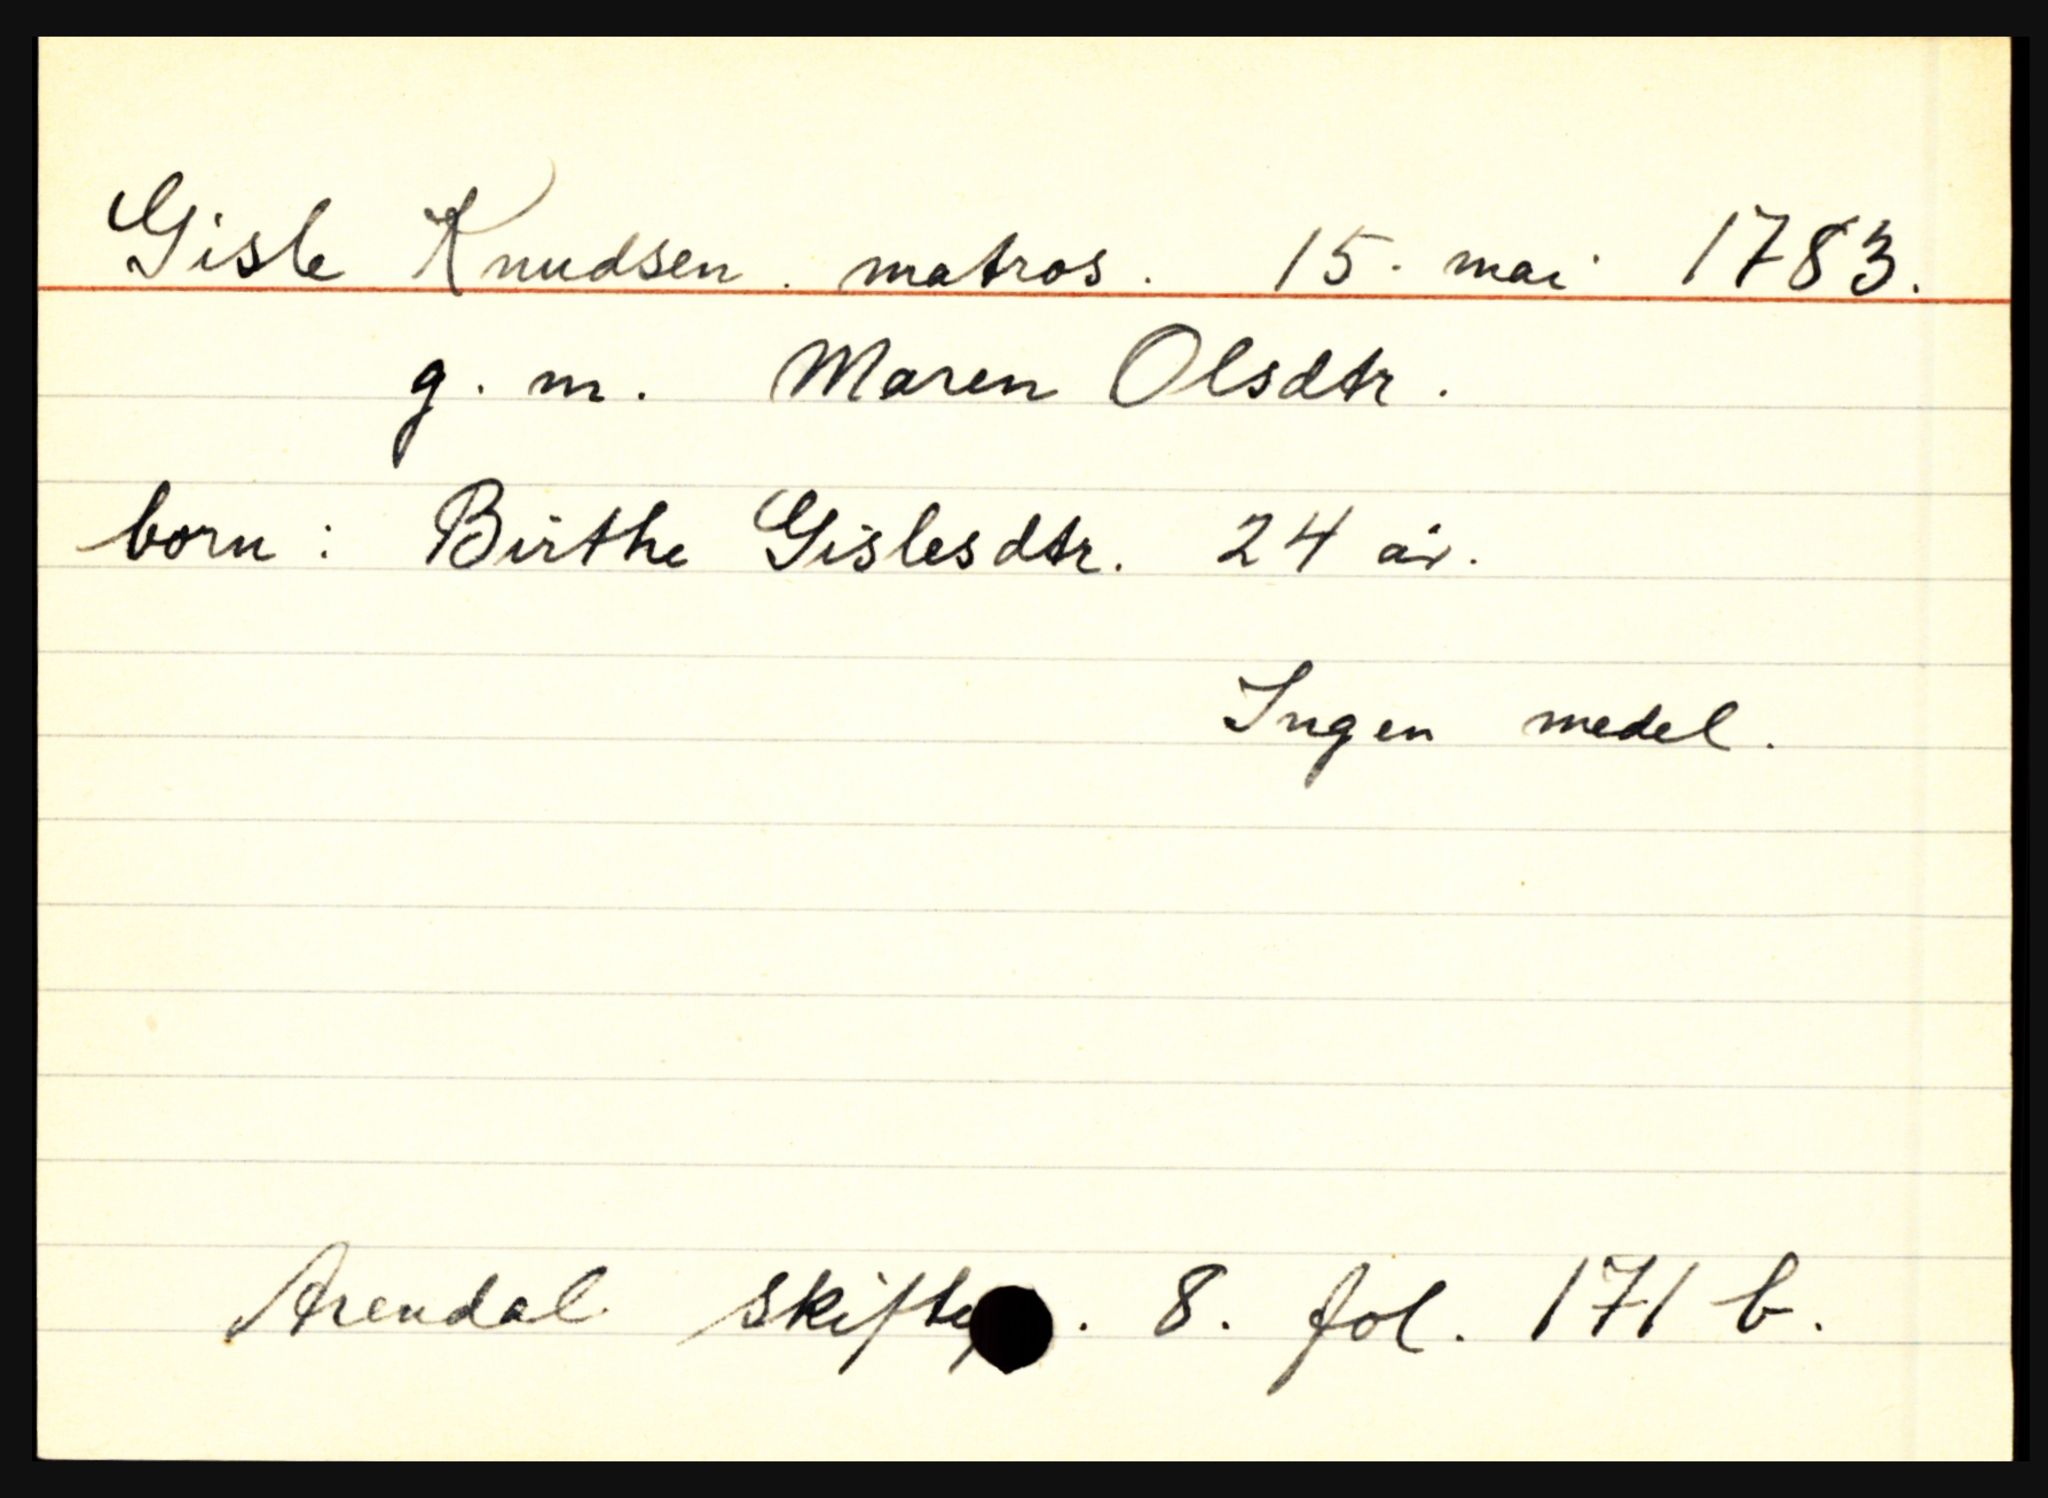 Gisle Knudsen. matros. 15. mai 1783.
g. m. Maren Olsdtr.
born: Birthe Gislesdtr. 24 år.
Ingen medel.
Arendal . 8. fol. 171 b.